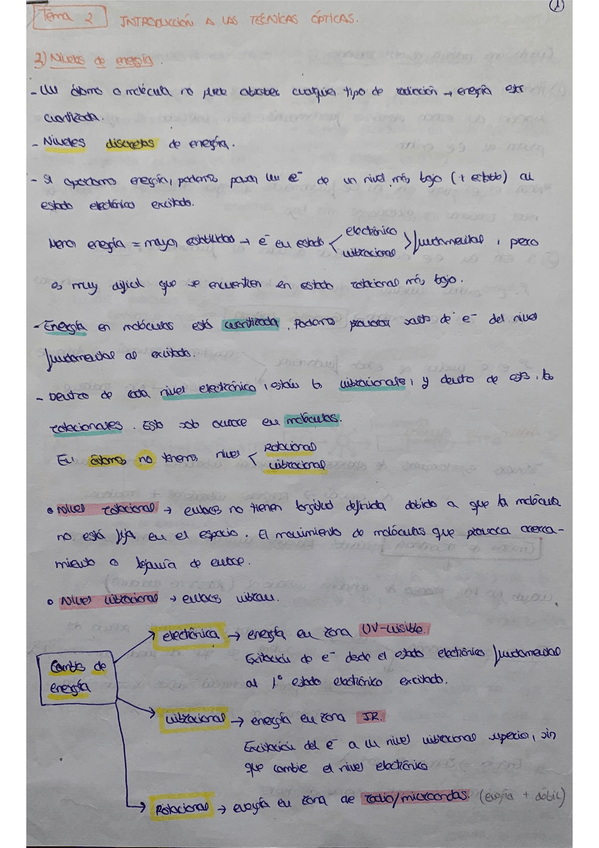 1
Tema 2 INTRODUCCIÓN A LAS TÉCNICAS ÓPTICAS.
2) Niveles de energía.
- Un átomo o molécula no puede absorber cualquier tipo de radiación → energía está
cuantizada.
- Niveles discretos de energía.
- Si aportamos energía, podemos pasar un e⁻ de un nivel más bajo (+ estable) al
estado electrónico excitado.
Menor energía = mayor estabilidad → e⁻ en estado < electrónico
vibracional > fundamental, pero
es muy difícil que se encuentren en estado rotacional más bajo.
- Energía en moléculas está cuantizada. Podemos provocar salto de e⁻ del nivel
fundamental al excitado.
- Dentro de cada nivel electrónico, están los vibracionales, y dentro de estos, los
rotacionales. Esto solo ocurre en moléculas.
En átomos no tenemos nivel < Rotacional
vibracional
• Nivel rotacional → enlaces no tienen longitud definida debido a que la molécula
no está fija en el espacio. El movimiento de moléculas que provoca acerca-
miento o lejanía de enlace.
• Nivel vibracional → enlaces vibran.
Cambios de
energía
electrónica → energía en zona UV-visible.
Excitación de e⁻ desde el estado electrónico fundamental
al 1º estado electrónico excitado.
vibracional → energía en zona IR.
Excitación del e⁻ a un nivel vibracional superior, sin
que cambie el nivel electrónico
Rotacional → energía en zona de radio/microondas. (energía + débil)